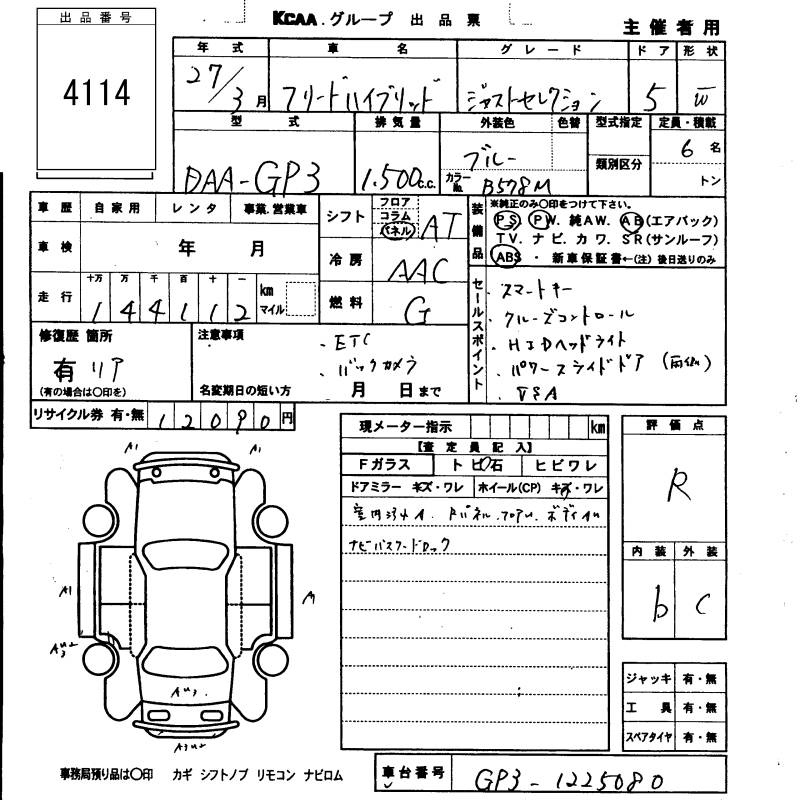 出品番号
4114
KCAA.グループ 出品票
主催者用
年式 車名 グレード ドア 形状
27/3月 フリードハイブリッド ジャストセレクション 5 W
型式 排気量 外装色 色替 型式指定 定員・積載
DAA-GP3 1.500c.c. ブルー 類別区分 6名
カラーNo. B578M トン
車歴 自家用 レンタ 事業.営業車
車検 年 月
走行 十万 万 千 百 十 一
144112 km マイル
シフト フロア コラム パネル AT
冷房 AAC
燃料 G
装備品 ※純正のみ〇印をつけて下さい。
PS PW. 純AW. AB(エアバック)
TV. ナビ. カワ. SR(サンルーフ)
ABS ・ 新車保証書←(注) 後日送りのみ
セールスポイント
・スマートキー
・クルーズコントロール
・HIDヘッドライト
・パワースライドドア (両側)
・VSA
修復歴 箇所
有 リア
(有の場合は〇印を)
注意事項
・ETC
・バックカメラ
名変期日の短い方 月 日まで
リサイクル券 有・無 12090円
現メーター指示 km
【査定員記入】
Fガラス トビ石 ヒビワレ
ドアミラー キズ・ワレ ホイール(CP) キズ・ワレ
ナビパスワードロック
評価点
R
内装 外装
b C
ジャッキ 有・無
工具 有・無
スペアタイヤ 有・無
A1 A1
A1
事務局預り品は〇印 カギ シフトノブ リモコン ナビロム
車台番号 GP3-1225080